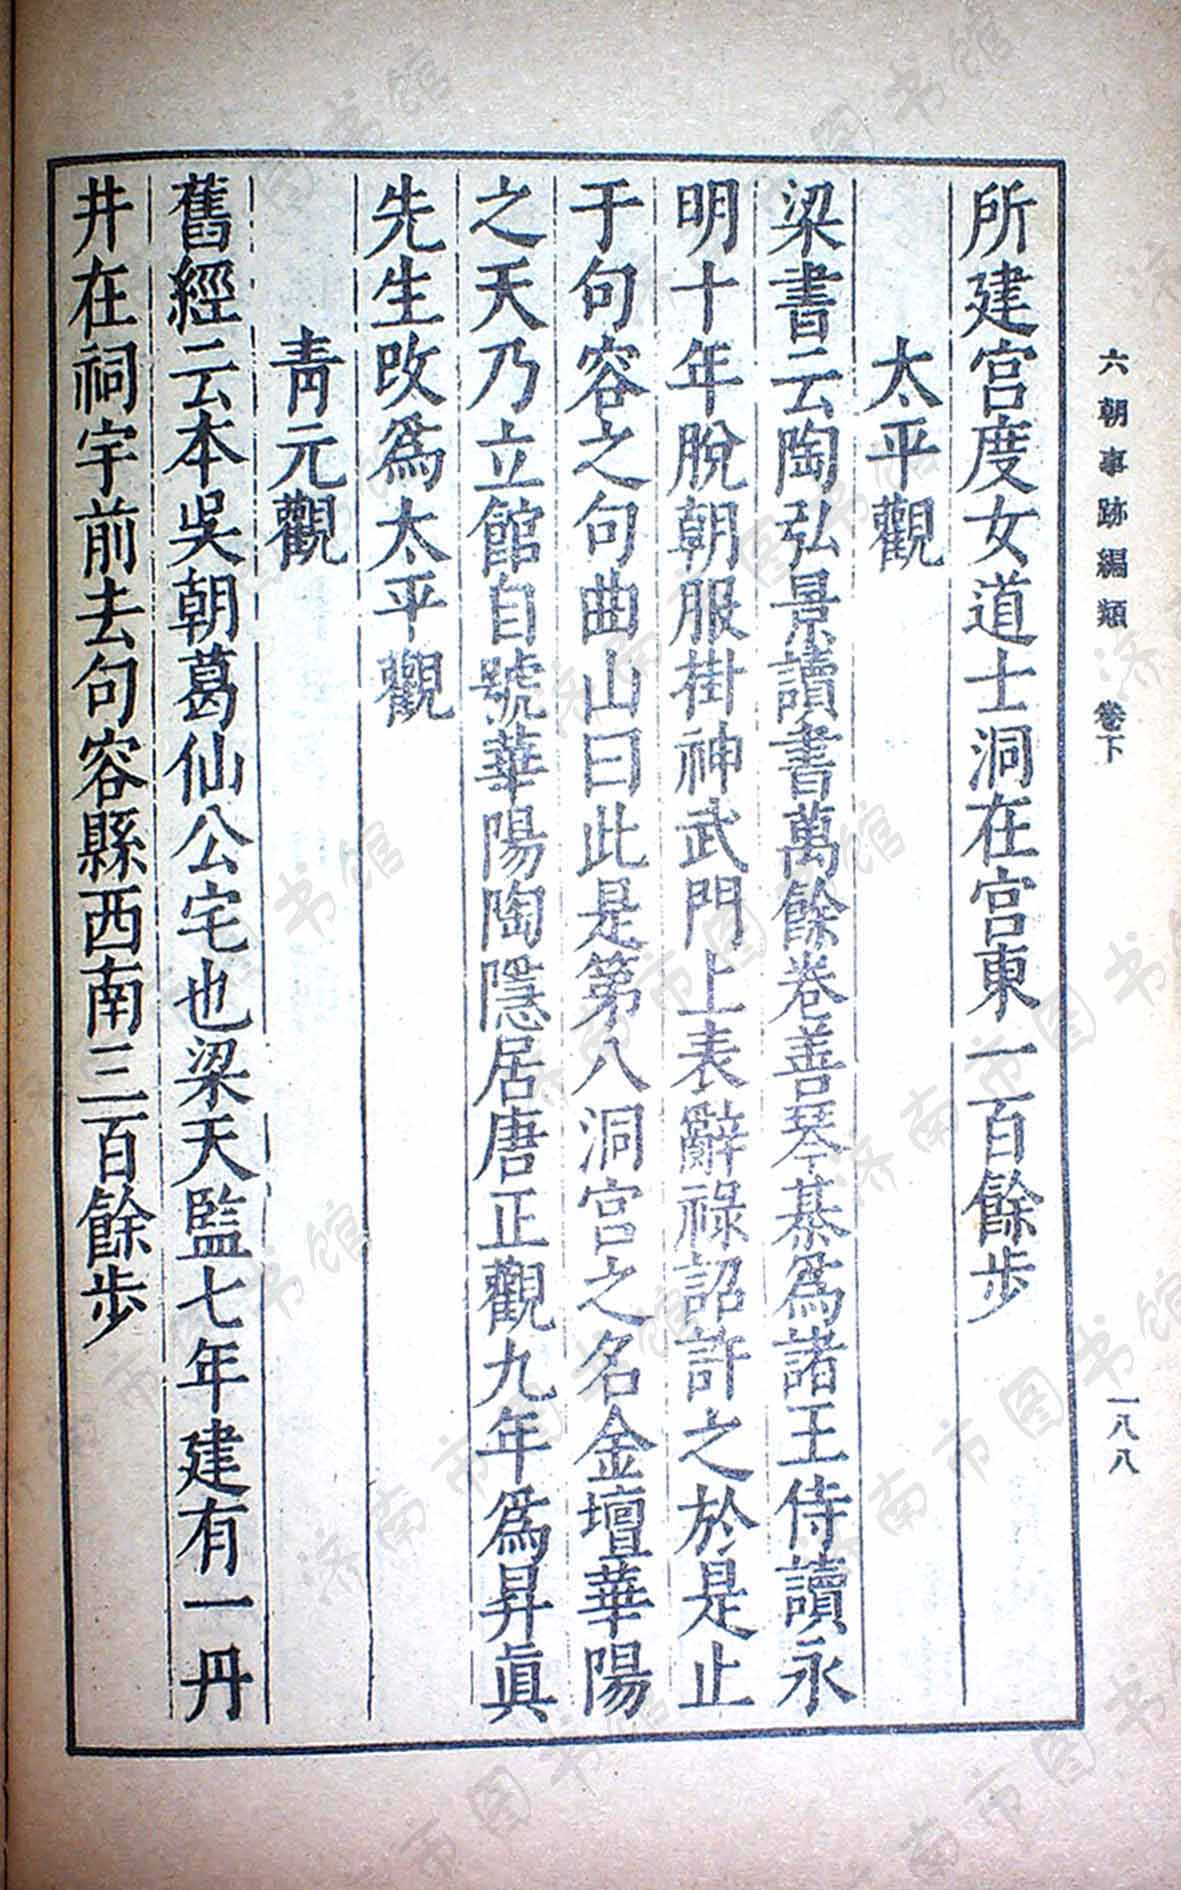 六朝事跡編類 卷下 一八八
所建宫度女道士洞在宫東一百餘步
太平觀
梁書云陶弘景讀書萬餘卷善琴棊爲諸王侍讀永
明十年脫朝服掛神武門上表辭祿詔許之於是止
于句容之句曲山曰此是第八洞宫之名金壇華陽
之天乃立館自號華陽陶隱居唐正觀九年爲昇眞
先生改爲太平觀
靑元觀
舊經云本吳朝葛仙公宅也梁天監七年建有一丹
井在祠宇前去句容縣西南三百餘步
济南市图书馆